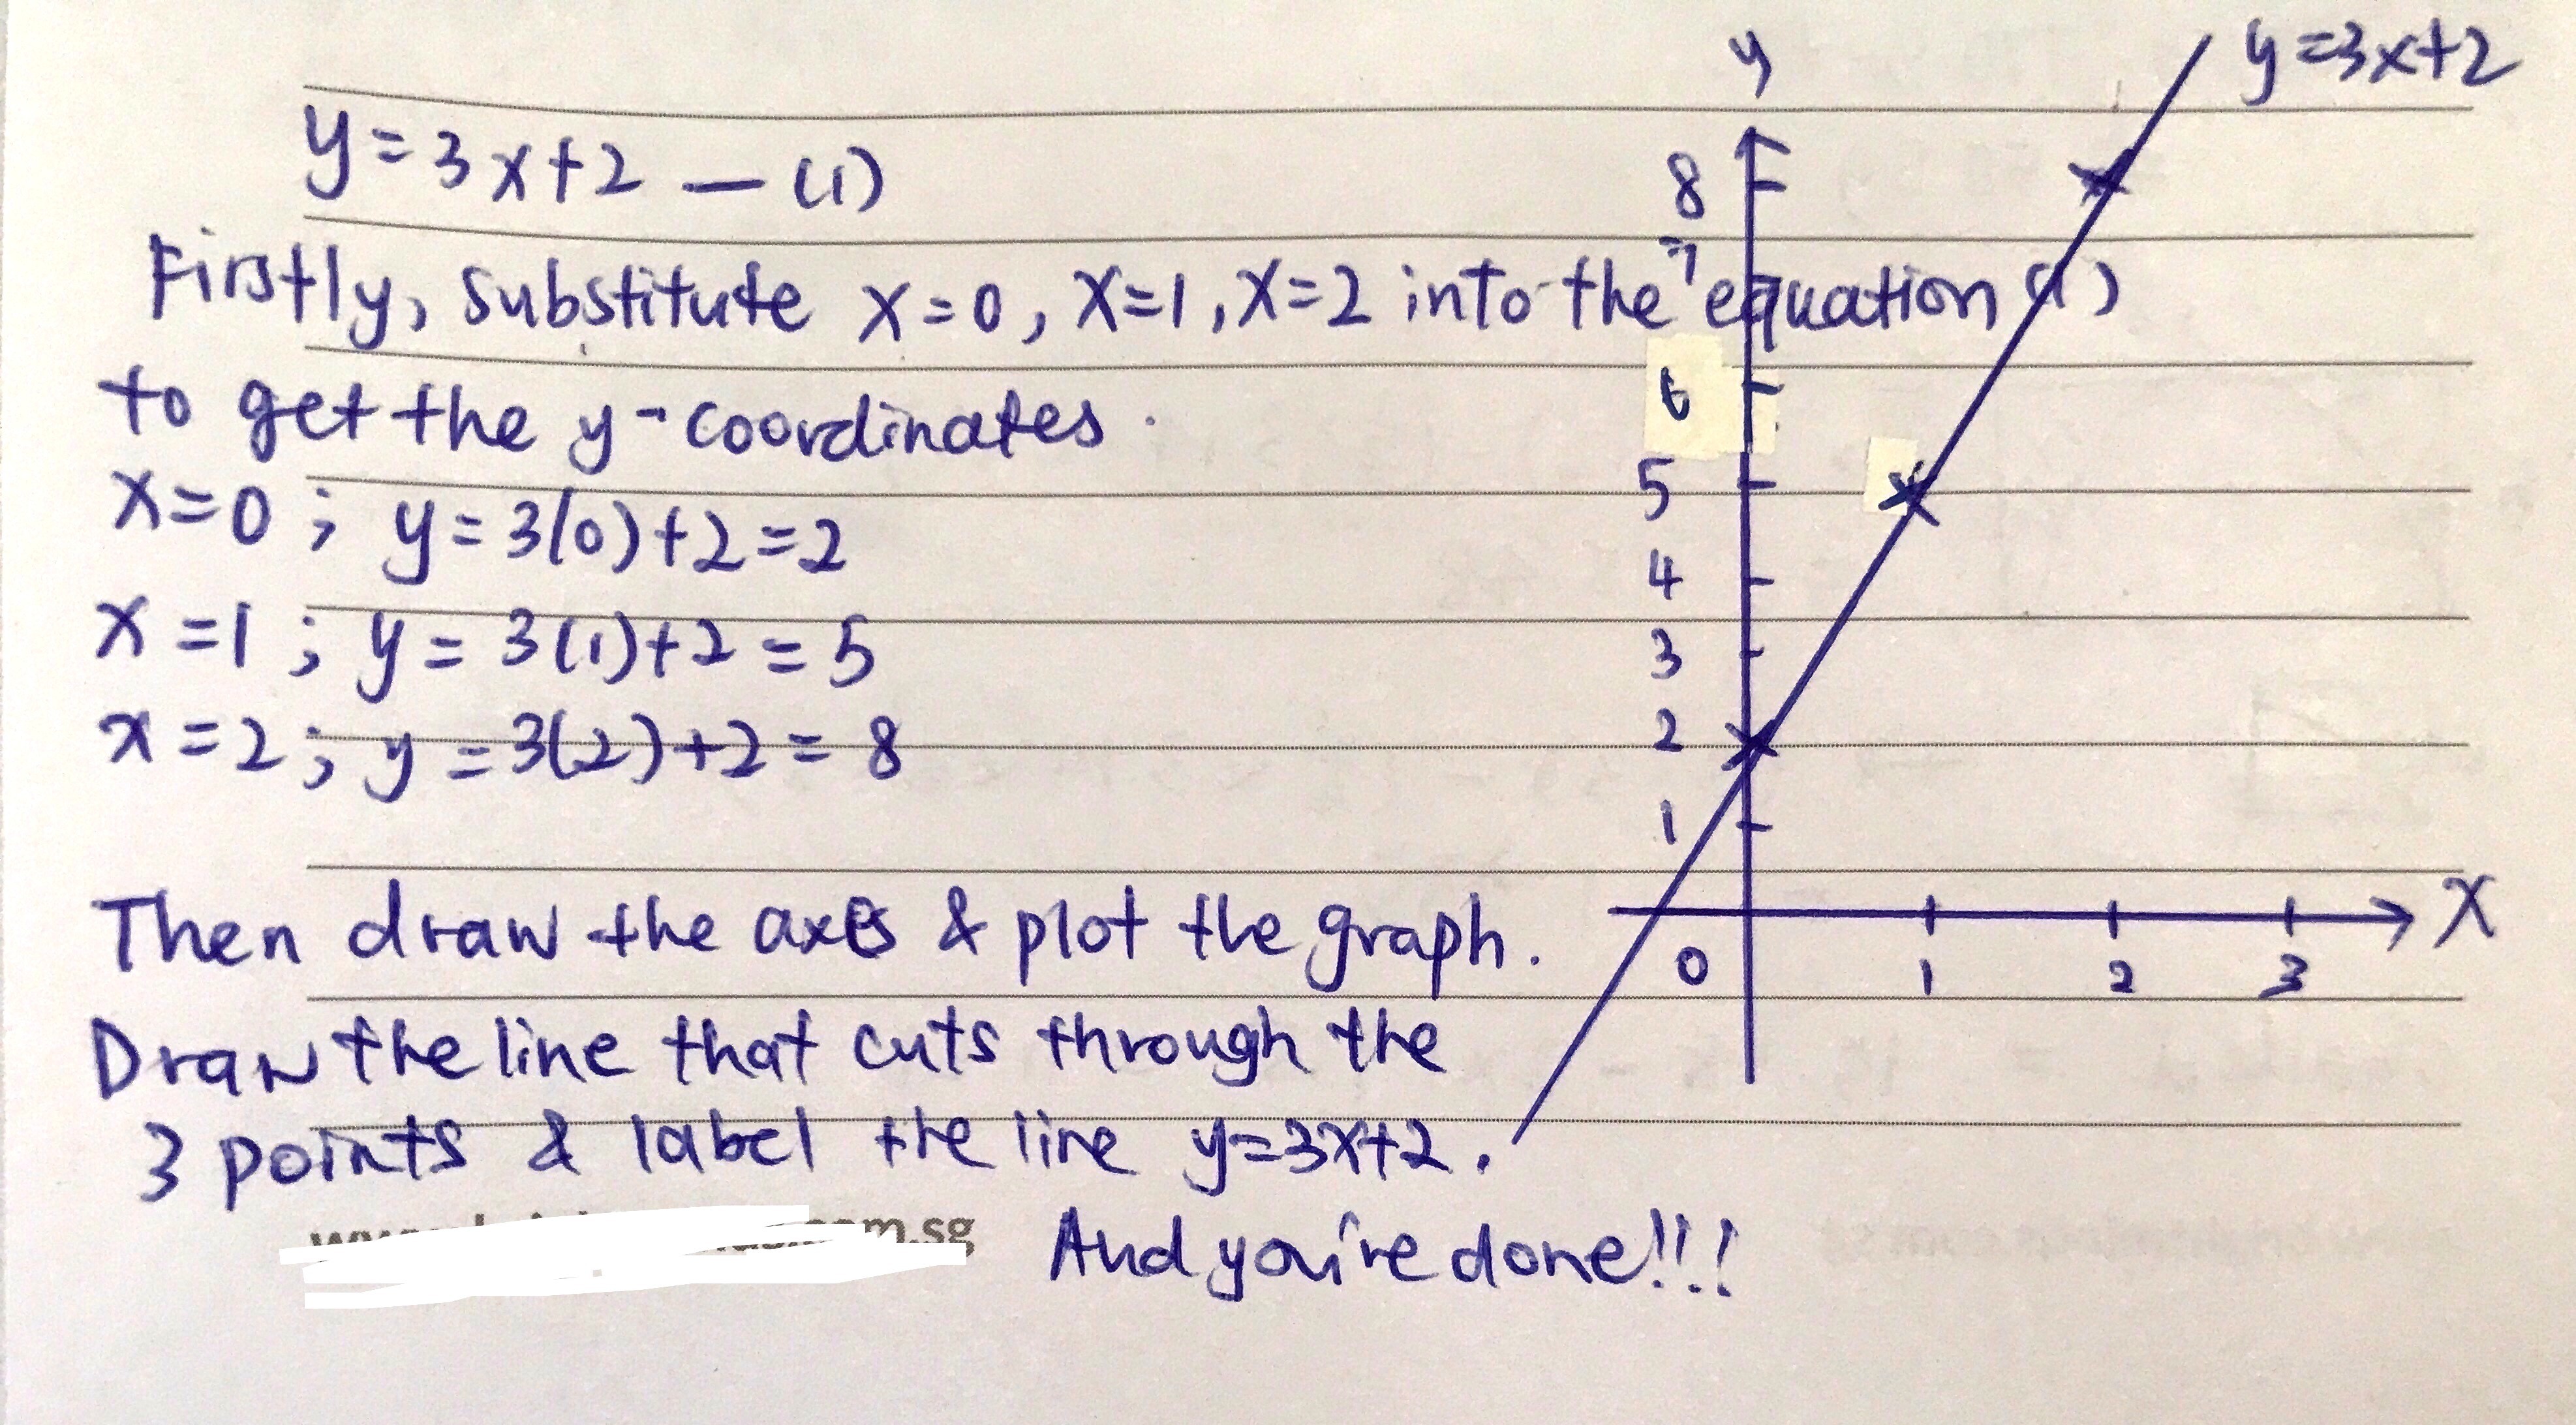 y=3x+2 — (1)
Firstly, substitute x=0, x=1, x=2 into the equation (1)
to get the y-coordinates.
x=0; y=3(0)+2=2
x=1; y=3(1)+2=5
x=2; y=3(2)+2=8
Then draw the axes & plot the graph.
Draw the line that cuts through the
3 points & label the line y=3x+2.
And you're done!!!
.sg
y
y=3x+2
8
7
6
5
4
3
2
1
0 1 2 3
x